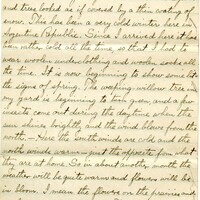 and trees looked as if covered by a thin coating of
snow. This has been a very cold winter here in
Argentine Republic. Since I arrived here it has
been rather cold all the time, so that I had to
wear woolen underclothing and woolen socks all
the time. It is now beginning to show some lit
the signs of spring. The weeping-willow tree in
my yard is beginning to turn green, and a few
insects come out during the daytime when the
sun shines brightly and the wind blows from the
north — Here the south winds are cold and the
north winds warm — just the opposite from what
they are at home. So in about another month the
weather will be quite warm and flowers will be
in bloom. I mean the flowers on the prairies and